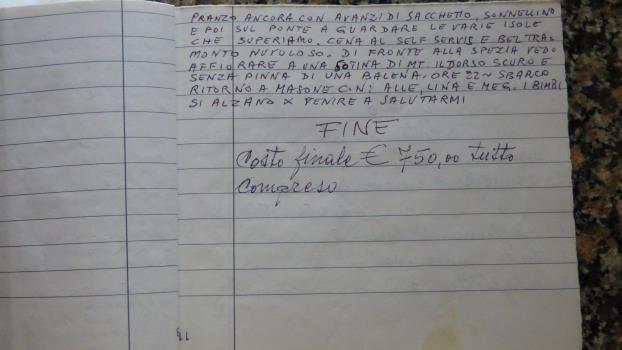 PRANZO ANCORA CON AVANZI DI SACCHETTO, SONNELLINO
E POI SUL PONTE A GUARDARE LE VARIE ISOLE
CHE SUPERIAMO. CENA AL SELF SERVIS E BEL TRA-
MONTO NUVOLOSO. DI FRONTE ALLA SPEZIA VEDO
AFFIORARE A UNA 50TINA DI MT. IL DORSO SCURO E
SENZA PINNA DI UNA BALENA. ORE 22~ SBARCO
RITORNO A MASONE CON: ALLE, LINA E MEG. I BIMBI
SI ALZANO X VENIRE A SALUTARMI
FINE
Costo finale € 750,00 tutto
compreso